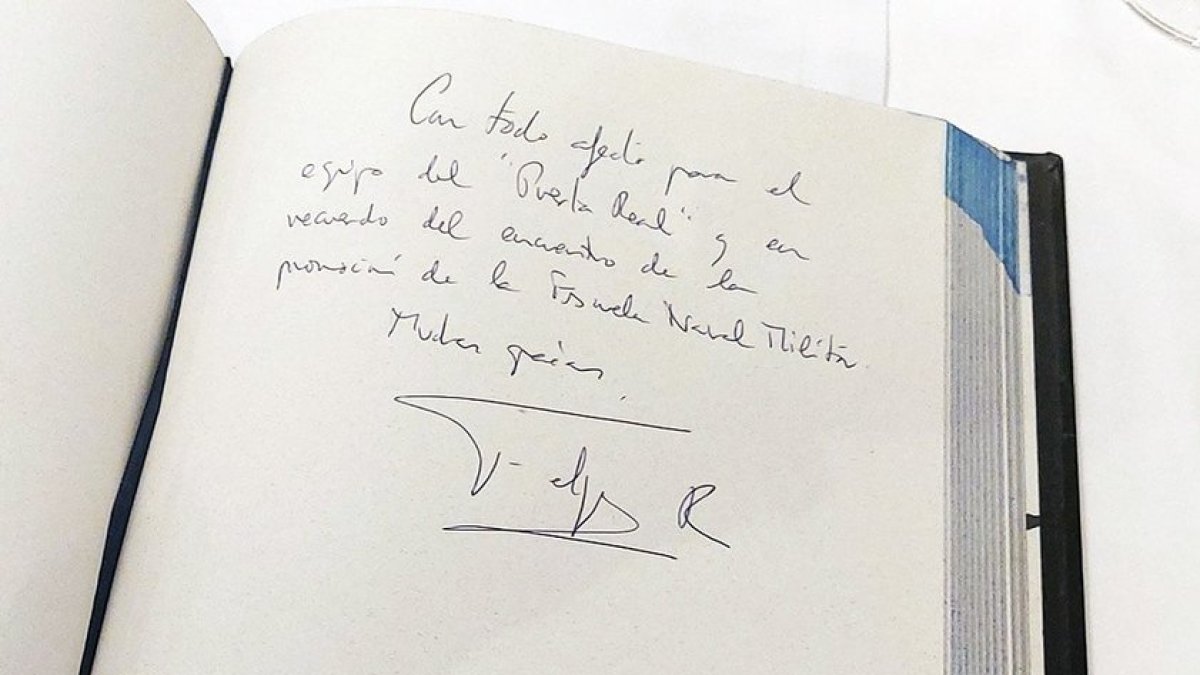 Con todo afecto para el
equipo del "Puerta Real" y en
recuerdo del encuentro de la
promoción de la Escuela Naval Militar.
Muchas gracias.
Felipe R